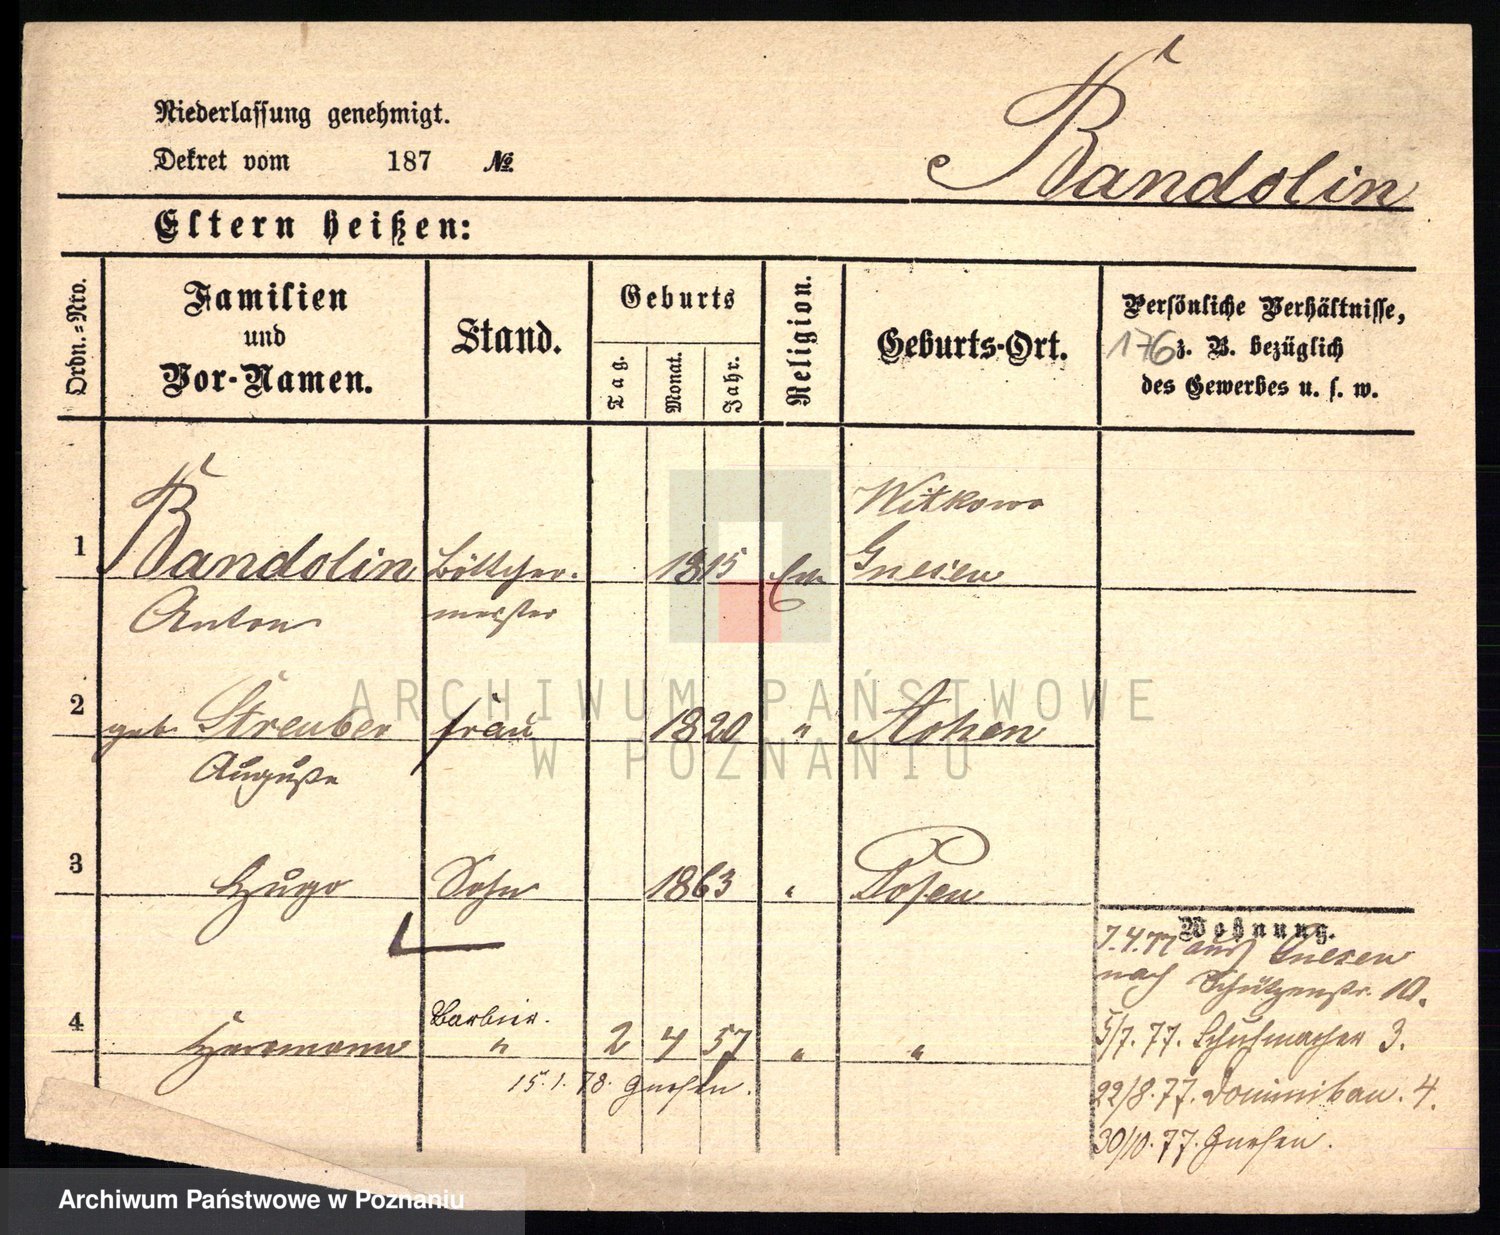 Niederlassung genehmigt.
Dekret vom 187 №
Randolin
Eltern heißen:
Ordn.=Nro.
Familien
und
Vor-Namen.
Stand.
Geburts
Tag.
Monat.
Jahr.
Religion.
Geburts-Ort.
Persönliche Verhältnisse,
176 z. B. bezüglich
des Gewerbes u. s. w.
Witkowo
1 Randolin Böttcher- 1815 Ev. Gnesen
Anton meister
2 geb. Streuber Frau 1820 "
Auguste
3 Hugo Sohn 1863 " Posen
Wohnung.
7.4.77 aus Gnesen
nach Schützenstr. 10.
Barbier.
4 Herrmann " 2 4 57 " "
5/7. 77. Schuhmacher 3.
15.1.78. Gnesen.
22/8. 77. Dominikan. 4.
30/10. 77. Gnesen.
ARCHIWUM PAŃSTWOWE
W POZNANIU
Archiwum Państwowe w Poznaniu